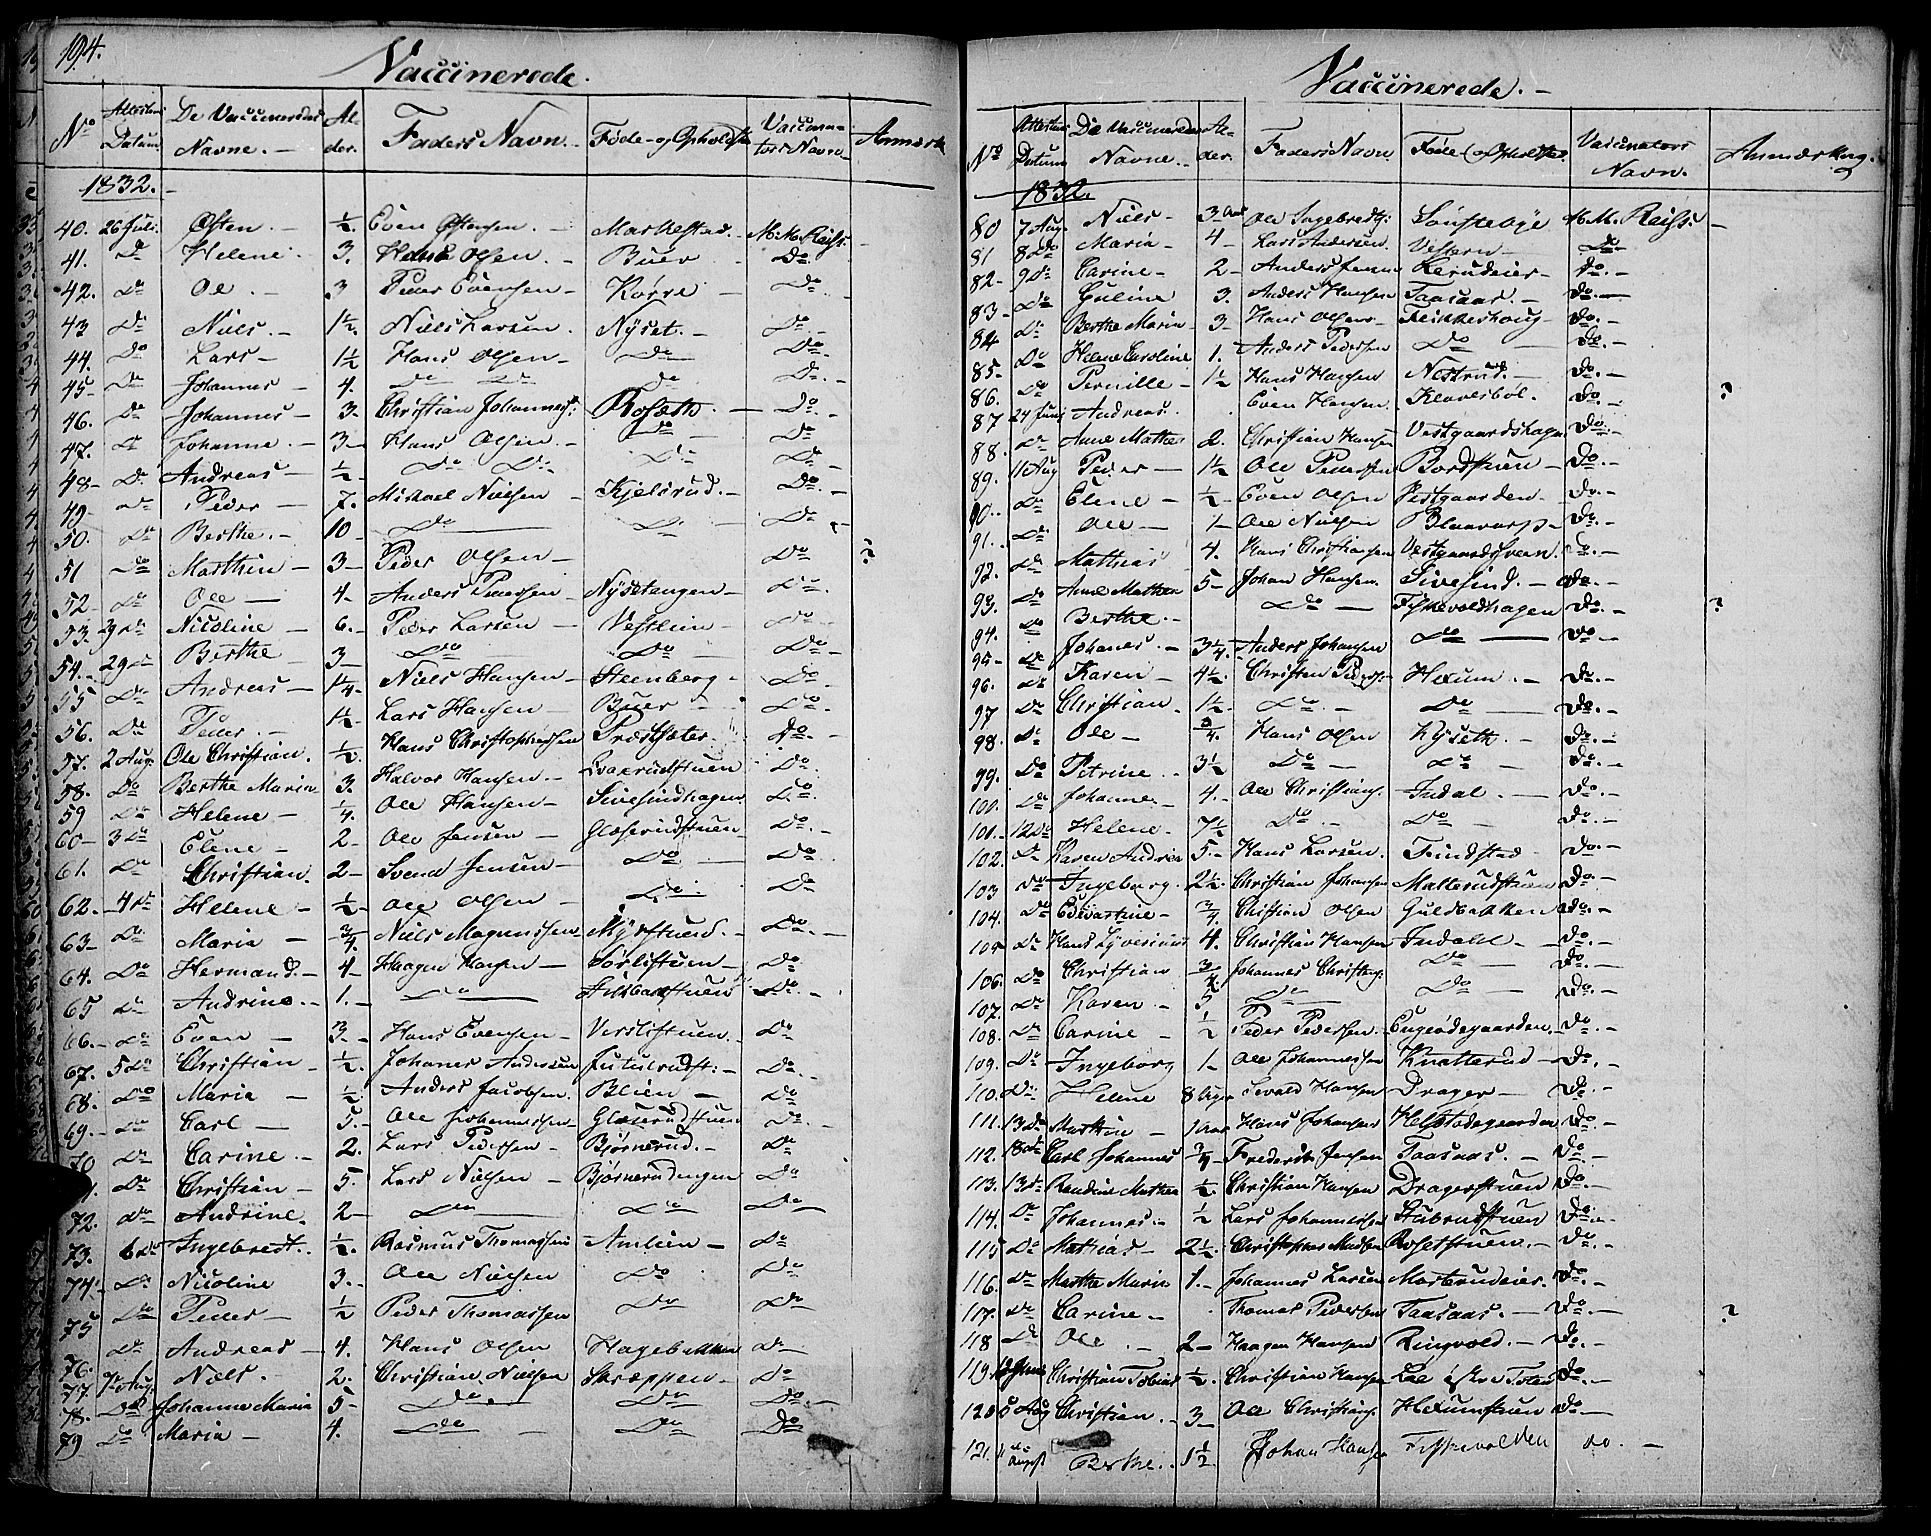 194.
Vaccinerede.
No Attestens Datum De Vaccineredes Navne. Alder. Faders Navn. Føde- og Opholdst. Vaccinators Navn Anmærk
1832.
40. 26 Juli Østen. ½. Even Østensen. Markestad. M. M. Reiss.
41. Do Helene. 3. Hans Olsen. Buer Do.
42. Do Ole 3 Peder Evensen Korre Do
43 Do Niels. 1½. Niels Larsen. Nyset. Do
44. Do Lars 1½ Hans Olsen Do Do
45 Do Johannes 4. Do Do Do Do.
46. Do Johannes 3. Christian Johannes: Roseth. Do.
47. Do Johanne. 3 Hans Olsen. Do Do
48 Do Andreas ½ Do Do Do Do
49 Do Peder 7. Michael Nielsen Kjelsrud. Do.
50. Do Berthe. 10 Do Do Do
51 Do Marthin 3 Peder Olsen Do ?
52 Do Ole 4. Anders Paulsen Nysetengen Do.
53. 29 Do Nicoline 6. Peder Larsen Vestlien Do
54. 29 Do Berthe 3 Do Do Do
55 Do Andreas 1¼ Niels Hansen Steenberg Do
56. Do Peder. 1½ Lars Hansen Buer Do
57. 2 Aug. Ole Christian. ½. Hans Christophersen Præstsæter. Do.
58. Do Berthe Maria 3. Halvor Hansen Loxerudstuen Do.
59 Do Helene ¼. Ole Hansen Sivesindhagen Do.
60 3 Do Elene 2 Ole Jensen Glæserudstuen Do.
61. Do Christian. 2 Svend Jensen Do Do
62. 4 Do Helene ½ Ole Olsen Do. Do
63 Do Maria ¾ Niels Magnussen Myrstuend. Do.
64. Do Hermand. 4 Haagen Hansen Sørlistuen Do.
65 Do Andrine. 1. Do Do.
66. Do Even 3 Hans Evensen Verslistuen. Do
67. 5 Do Christian ½. Johanes Andersen Jutulrudst: Do.
68. Do Maria ½ Anders Jacobsen. Blien Do
69. Do Carl 5. Ole Johannessen Glæserudstuen Do
70 Do Carine. 2. Lars Pedersen Bjørnerud. Do
71. Do Christian 5. Lars Nielsen Bjørnerudengen Do
72. Do Andrine. 2 Do Do Do
73. 6 Do Ingebredt. ½. Rasmus Thomassen Amlien Do
74 Do Nicoline 3. Ole Nielsen Do Do
75 Do Peder ½ Peder Thomassen Do Do
76. Do Andreas 4. Hans Olsen Hagebakken Do
77. 7 Aug. Niels. 2. Christian Nielsen Skræppen Do
78. Do Johanne Maria 5 Do. Do Do
79 Do Maria 4. Do Do Do
Vaccinerede.
No Attestens Datum De Vaccineredes Navne. Alder. Faders Navn Føde og Opholdst. Vaccinators Navn. Anmærkning.
1832.
80 7 Aug Niels 3 Aar Ole Ingebredts: Sønstebye M. M. Reiss.
81 8 Do Maria 4 Lars Andersen. Vestern Do
82 9 Do Carine 2 Anders Jensen Lerudeier Do.
83 Do Guline 3. Anders Hansen Taasaas. Do.
84 Do Berthe Maria 3 Hans Olsen Finkerhoug Do.
85. Do Helene Caroline 1. Anders Pedersen Do Do.
86. Do Pernille 1½ Hans Hansen Nestrud. Do. ?
87 24 Juni Andreas. Even Hansen. Klovesbøl. Do.
88. Do Anne Mathea 2. Christian Hansen Vestgaardshagen Do.
89. 11 Aug Peder 1½ Ole Pedersen Bordstuen Do.
90. Do Elene ½ Even Olsen Vestgaarden Do.
91. Do Ole 1 Ole Nielsen Blaavarp Do.
92. Do Mathias 4. Hans Christiansen Vestgaardsveen. Do.
93. Do Anne Mathea 5 Johan Hansen. Sivesind. Do.
94. Do Berthe. Do Fiskevoldhagen Do. ?
95 Do Johanes. 3¼. Anders Johansen Do Do.
96. Do Karen 4½. Christen Peders: Hexum. Do.
97 Do Christian. 1½ Do. Do Do.
98. Do Ole ¾. Hans Olsen Kyseth. Do.
99. Do Petrine. 3½ Do Do Do.
100. Do Johanne. 4. Ole Christians. Indal. Do.
101. 12 Do Helene. 7½ Do. Do Do.
102. Do Karen Andrea 5. Hans Larsen. Findstad. Do.
103 Do Ingeborg. 2½. Christian Johansen Malterudstuen Do.
104. Do Edvartine ¾. Christian Olsen Guldbakken Do.
105 Do Hans Syverinus 4. Christian Hansen Indahl Do.
106. Do Christian ¾ Johannes Christians: Do Do.
107. Do Karen 5 Do Do Do.
108. Do Carine ½ Peder Pedersen. Engeødegaarden Do.
109. Do Ingeborg 1 Ole Johannessen Knatterud Do.
110. Do Helene 8 Uger Sivald Hansen Drager Do.
111. 13 Do Marthin 1 Aar Hans Johansen Helstadegaarden Do.
112. 18 Do Carl Johannes ¾ Frederik Jensen Taasaas. Do.
113. 13 Do Randine Mathea ½. Christian Hansen Dragerstuen Do.
114. Do Johannes. ½ Lars Johannessen Stubrudstuen Do.
115 Do Mathias 2½. Christopher Madsen Rosetstuen. Do.
116. Do Marthe Maria 1. Johannes Larsen Morterudeier. Do.
117. Do Carine. Thomas Pedersen Taasaas. Do. ?
118 Do Ole 2 Haagen Hansen Ringvold. Do.
119. Christian Tobias ½. Christian Hansen Do.
120 6 Aug Christian. 3 Ole Christians. Hexumstuen Do.
121. 4 August Berthe. 1½ Johan Hansen Fiskevolden do.